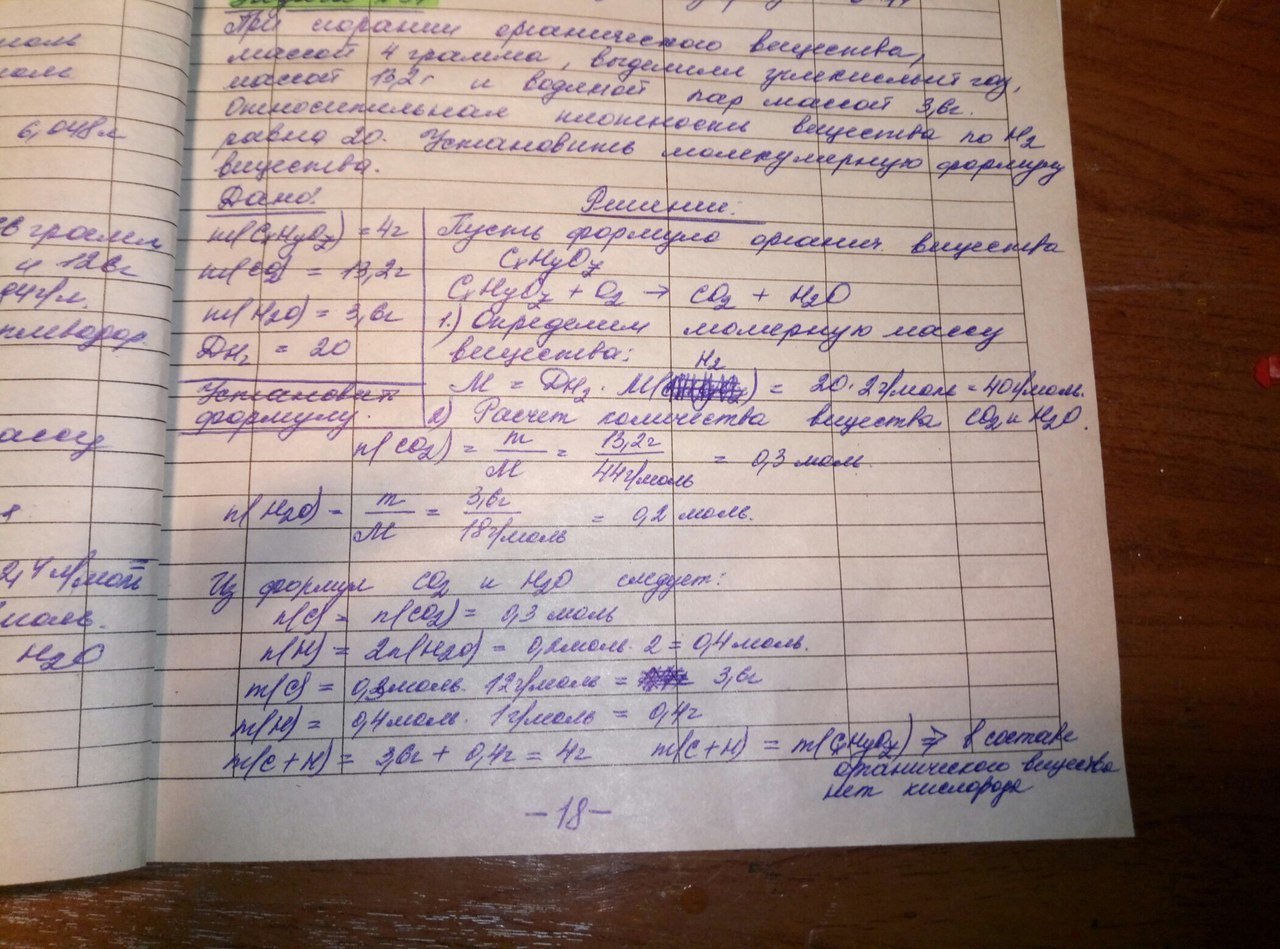 При сгорании органического вещества,
массой 4 грамма, выделили углекислый газ,
массой 13,2г и водяной пар массой 3,6г.
Относительная плотность вещества по H2
равна 20. Установить молекулярную формулу
вещества.
Дано:
m(CxHyOz) = 4г
m(CO2) = 13,2г
m(H2O) = 3,6г
DH2 = 20
Установить
формулу.
Решение:
Пусть формула органич. вещества
CxHyOz
CxHyOz + O2 → CO2 + H2O
1.) Определим молярную массу
вещества:
M = DH2 · M(H2) = 20 · 2г/моль = 40г/моль.
2) Расчет количества вещества CO2 и H2O.
n(CO2) = m/M = 13,2г/44г/моль = 0,3 моль.
n(H2O) = m/M = 3,6г/18г/моль = 0,2 моль.
Из формул CO2 и H2O следует:
n(C) = n(CO2) = 0,3 моль
n(H) = 2n(H2O) = 0,2моль · 2 = 0,4 моль.
m(C) = 0,3моль · 12г/моль = 3,6г
m(H) = 0,4моль · 1г/моль = 0,4г
m(C+H) = 3,6г + 0,4г = 4г m(C+H) = m(CxHyOz) ⇒ в составе
органического вещества
нет кислорода
-18-
6,048л
грамм
и 126г
моль.
H2O